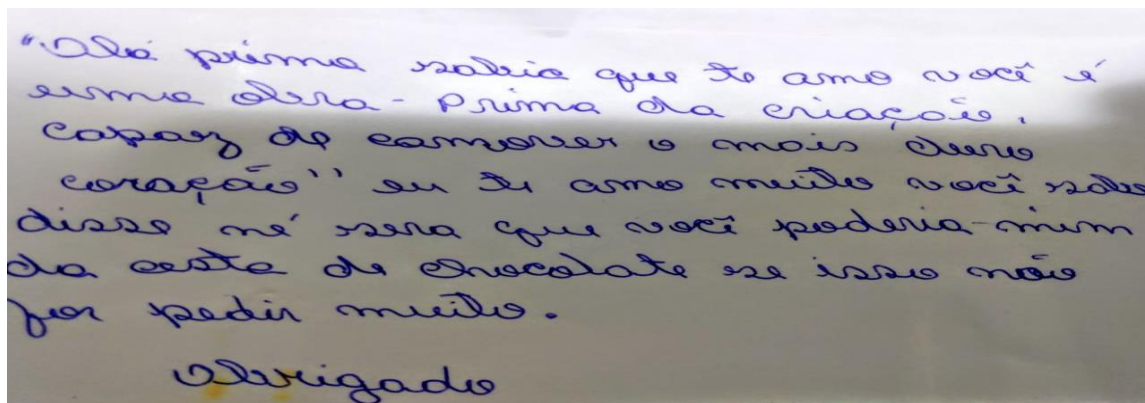 "Olá prima sabia que te amo você é
uma obra-prima da criação,
capaz de comover o mais duro
coração" eu te amo muito você sabe
disso né sera que você poderia-mim
da cesta de chocolate se isso não
for pedir muito.
Obrigado